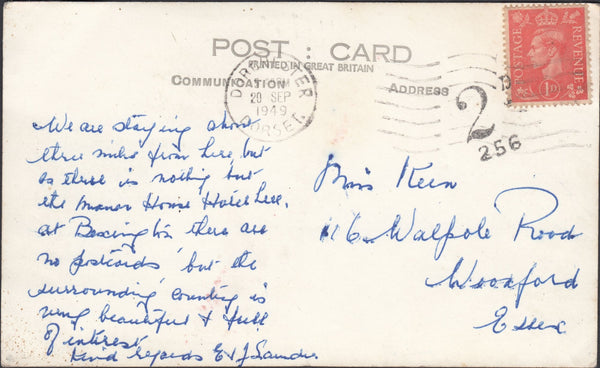 POST : CARD
PRINTED IN GREAT BRITAIN
COMMUNICATION
ADDRESS
DORCHESTER
20 SEP
1949
DORSET
POSTAGE
REVENUE
1D
2
256
We are staying about
three miles from here but
as there is nothing but
the Manor House Hotel here,
at there are
no postcards but the
surrounding country is
very beautiful & full
of interest.
Kind regards E & J
Miss Keen
116 Walpole Road
Woodford
Essex